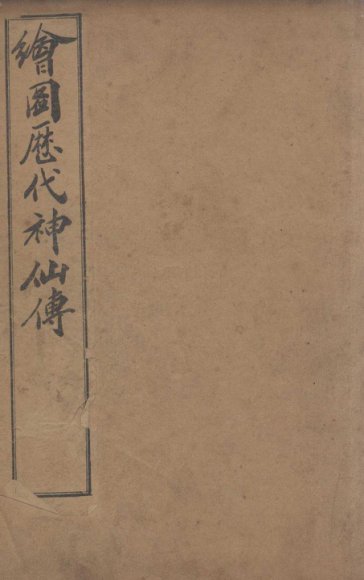 繪圖歷代神仙傳